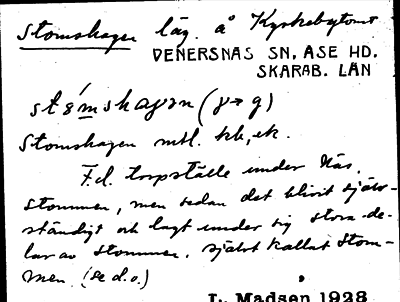 Stomshagen läg. å Kyrkebytomt
VENERSNÄS SN, ÅSE HD.
SKARAB. LÄN
stómshagən (γ→g)
Stomshagen mtl. kb, ek.
F.d. torpställe under Näs,
stommen, men sedan det blivit själv-
ständigt och lagt under sig stora de-
lar av stommen, självt kallat Stom-
men. (se d.o.)
L. Madsen 1928